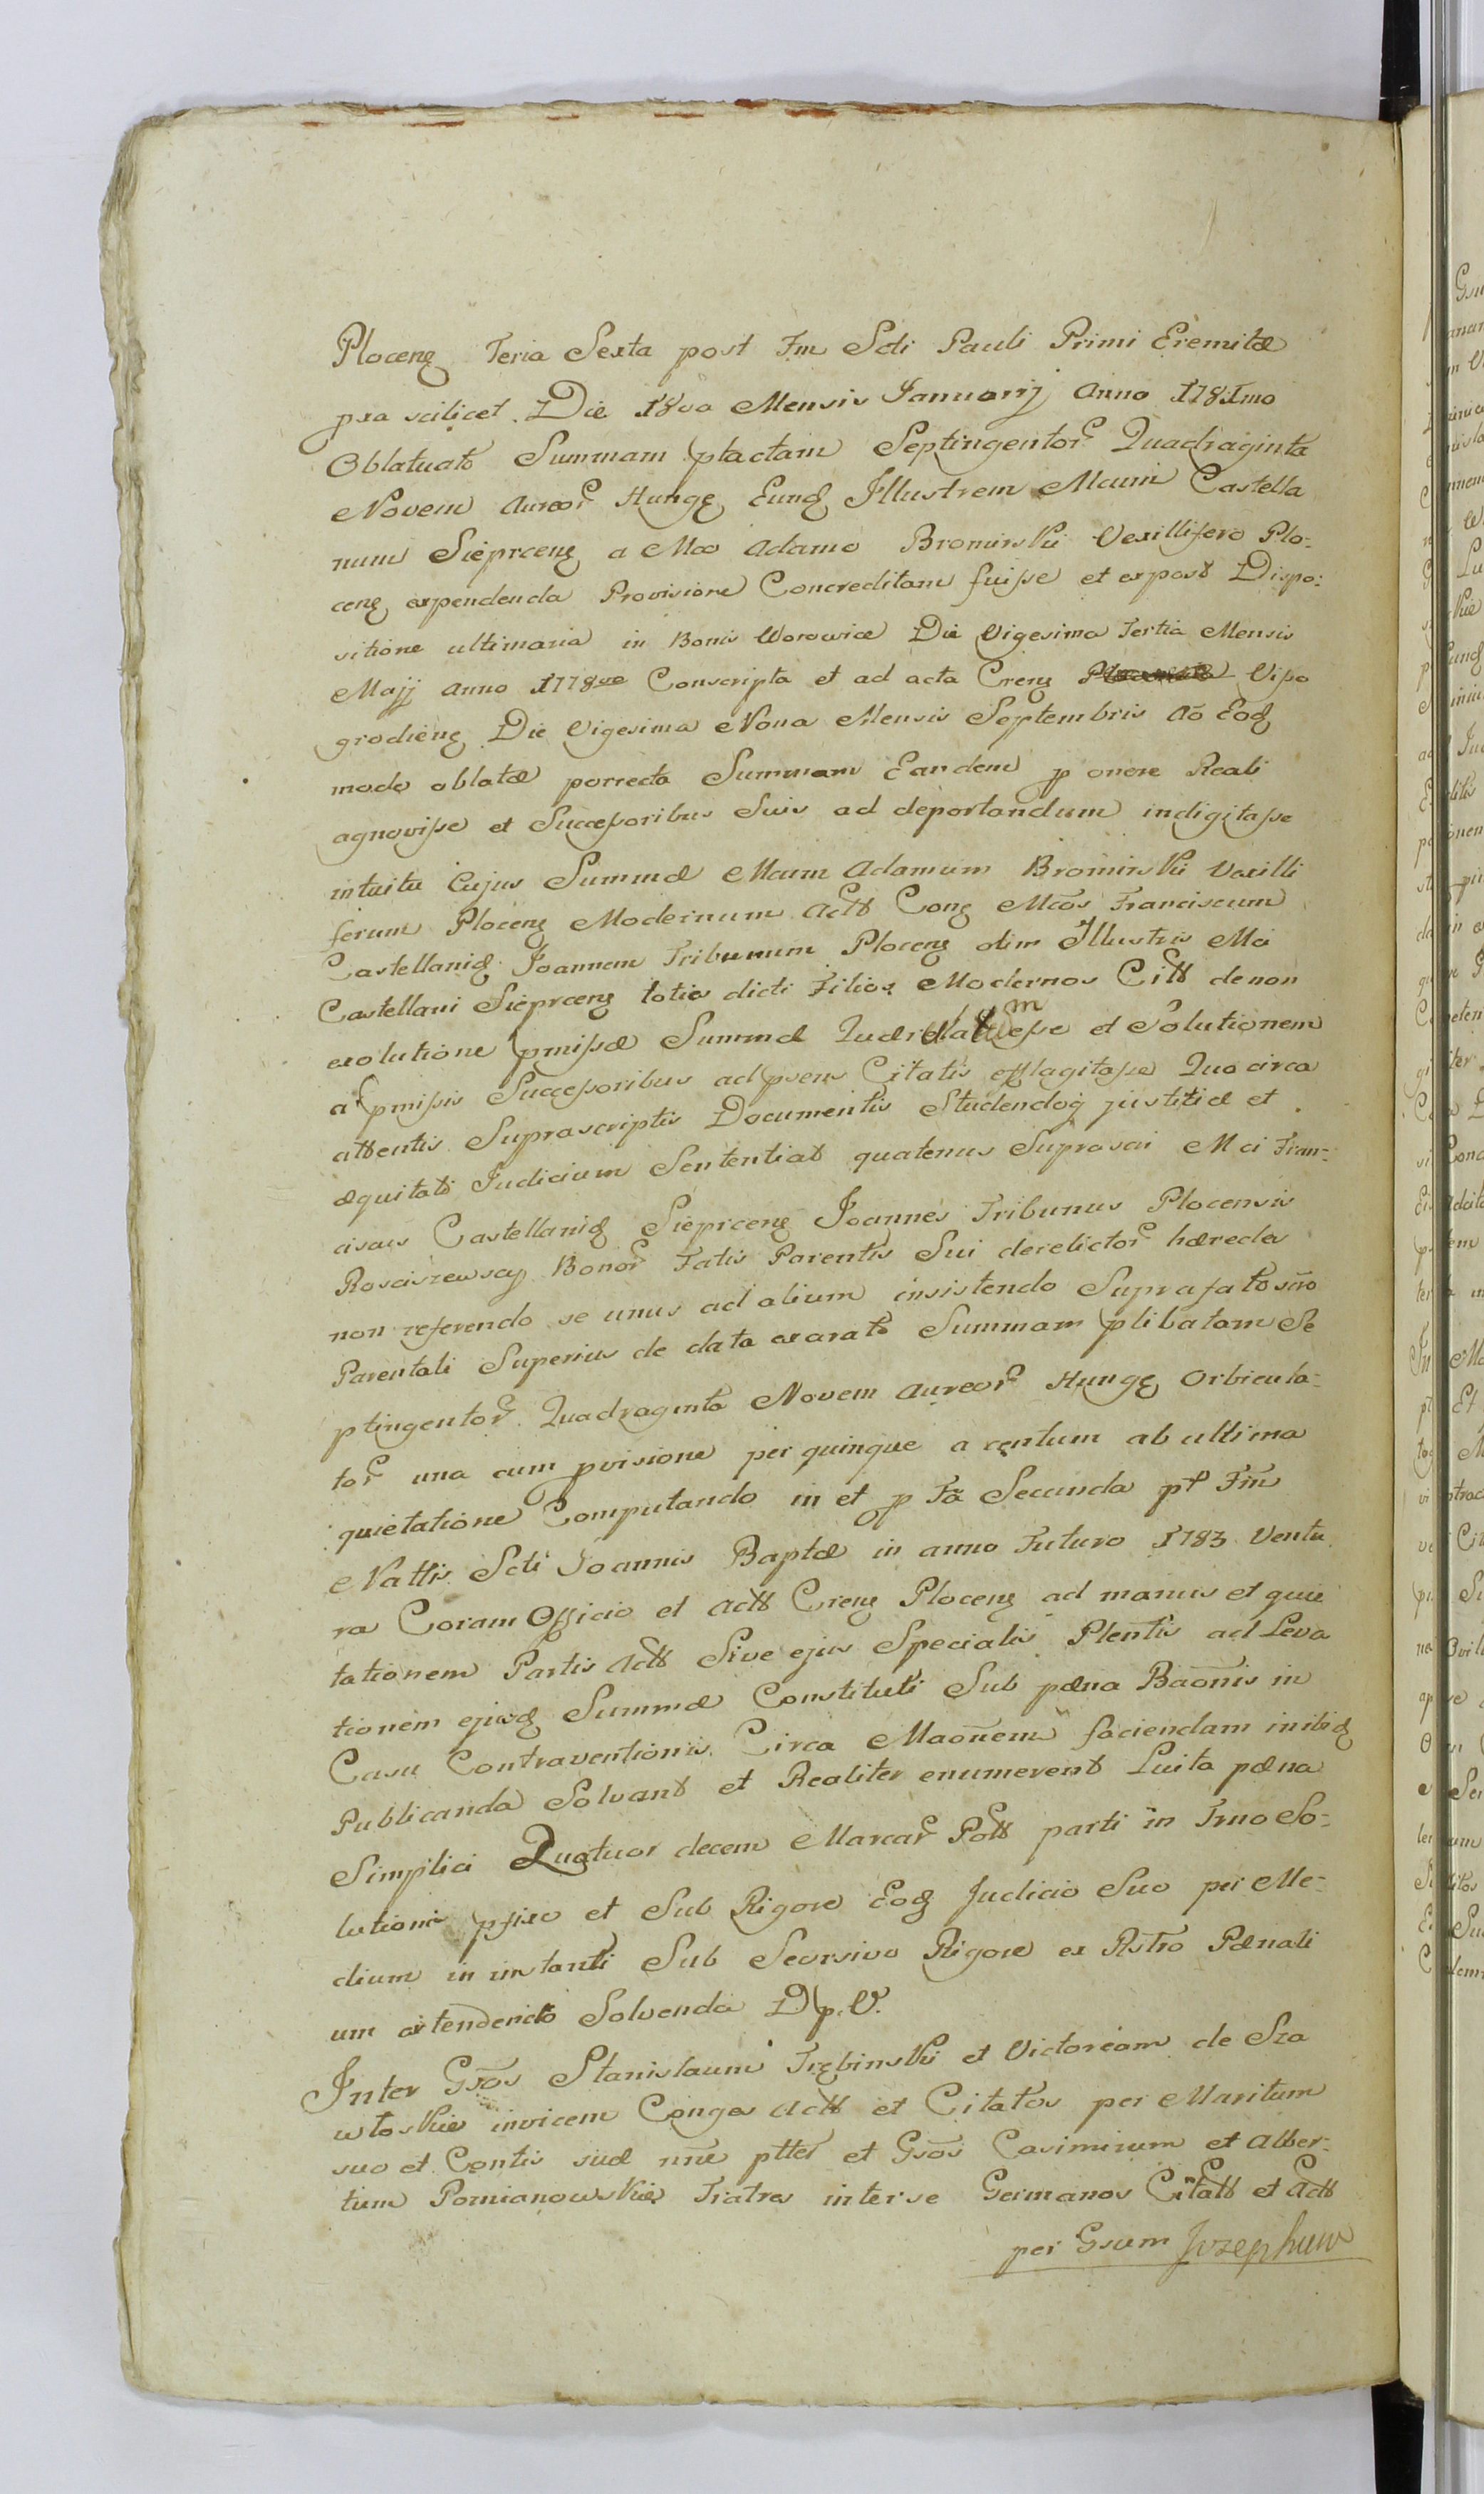 Plocen̄ Feria Sexta post Fm Scti Pauli Primi Eremitæ
pra scilicet Die 18va Mensis Januarij Anno 1781mo
Oblatuato Summam ptactam Septingentor Quadraginta
Novem Aureor Hung Eund Illustrem Mcum Castella
num Sieprcen a Mco Adamo Brominski Vexillifero Plo-
cen expendenda Provisione Concreditam fuisse et expost Dispo-
sitione ultimaria in Bonis Worowice Die Vigesima Tertia Mensis
Majj Anno 1778vo Conscripta et ad acta Cren Viso
grodien Die Vigesima Nona Mensis Septembris Ao Eod
modo oblatæ porrecta Summam Eandem p onere Reali
agnovisse et Successoribus Suis ad deportandum indigitasse
intuitu Cujus Summæ Mcum Adamum Brominski Vexilli
ferum Plocen Modernum Actt Con Mcos Franciscum
Castellanid Joannem Tribunum Plocen olim Illustris Mci
Castellani Sieprcen toties dicti Filios Modernos Citt de non
exolutione pmissæ Summæ esse et Solutionem
a pmissis Successoribus ad psens Citatis efflagitasse Quo circa
attentis Suprascriptis Documentis Studendoq justitiæ et
æquitati Judicium Sententiat quatenus Suprasci Mci Fran-
ciscus Castellanid Sieprcen Joannes Tribunus Plocensis
Rosciszewscy Bonor Fatis Parentis Sui derelictor hæredes
non referendo se unus ad alium insistendo Suprafato scro
Parentali Superius de data exarato Summam plibatam Se
ptingentor Quadraginta Novem Aureor Hung Orbicula-
tor una cum pvisione per quinque a centum ab ultima
quietatione Computando in et p Fa Secunda pt Fm
Nattis Scti Joannis Baptæ in anno Futuro 1783 Ventu
ra Coram Officio et Actt Cren Plocen ad manus et quie
tationem Partis Actt Sive ejus Specialis Plentis ad Leva
tionem ejusd Summæ Constituti Sub pæna Baonis in
Casu Contraventionis Circa Maonem faciendam inibid
Publicanda Solvant et Realiter enumerent Luita pæna
Simplici Quatuor decem Marcar Pott parti in Trno So-
lutionis pfixo et Sub Rigore Eod Judicio Suo per Me-
dium in instanti Sub Seorsivo Rigore ex Rstro Pænali
um extendendo Solvenda D. p. V.
Inter Gsos Stanislaum Trębinski et Victoriam de Sza
wtoskie invicem Conges Actt et Citatos per Maritum
suo et Contis suæ nne ptter et Gsos Casimirum et Alber-
tum Pomianowskie Fratres inter se Germanos Citatt et Actt
per Gsum Jozephum